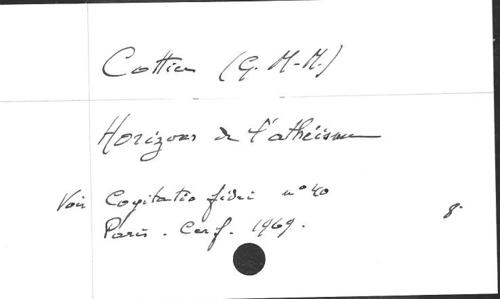 Cottier (G. M.-M.)
Horizons de l'athéisme
Voir Cogitatio fidei n° 40
Paris. Cerf. 1969. 8°